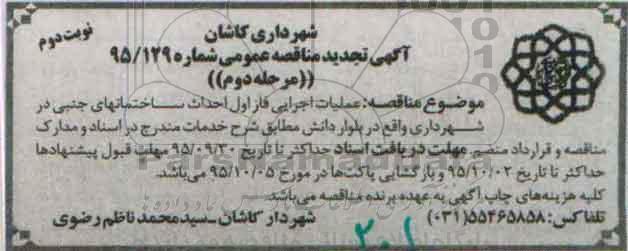 شهرداری کاشان
نوبت دوم
آگهی تجدید مناقصه عمومی شماره ۹۵/۱۲۹
((مرحله دوم))
موضوع مناقصه: عملیات اجرایی فاز اول احداث ساختمانهای جنبی در
شهرداری واقع در بلوار دانش مطابق شرح خدمات مندرج در اسناد و مدارک
مناقصه و قرارداد منضم مهلت دریافت اسناد حداکثر تا تاریخ ۹۵/۰۹/۳۰ مهلت قبول پیشنهادها
حداکثر تا تاریخ ۹۵/۱۰/۰۲ و بازگشایی پاکت‌ها در مورخ ۹۵/۱۰/۰۵ می‌باشد.
کلیه هزینه‌های چاپ آگهی به عهده برنده مناقصه می‌باشد.
تلفاکس: ۵۵۴۶۵۸۵۸(۰۳۱)
شهردار کاشان ـ سیدمحمد ناظم رضوی
۳۰۱